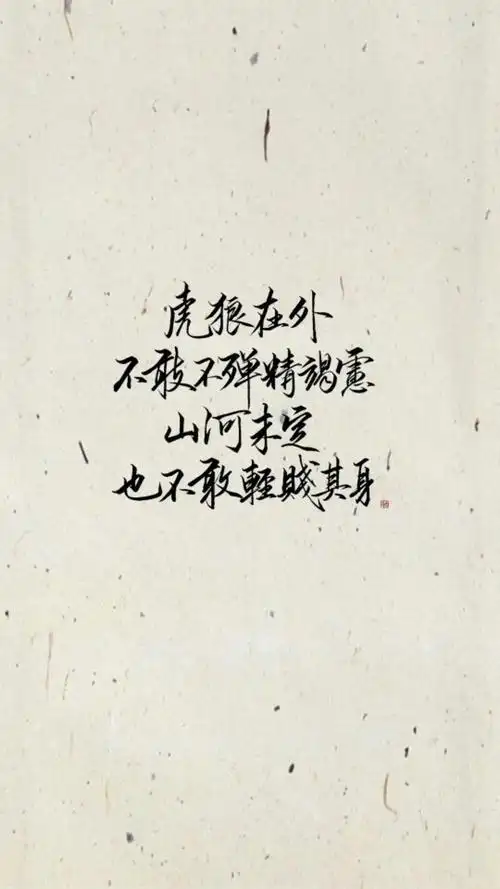 虎狼在外
不敢不殚精竭慮
山河未定
也不敢輕賤其身